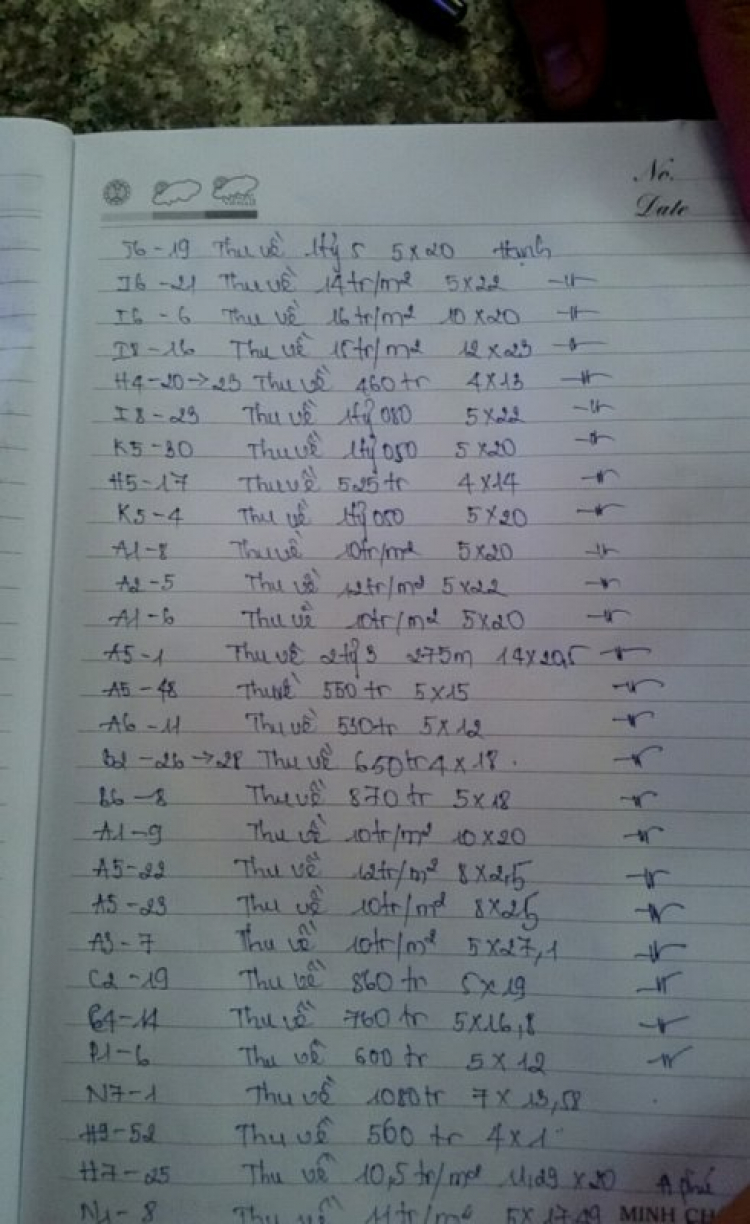 No.
Date
I6-19 Thu về 1tỷ5 5x20 Hạnh
I6-21 Thu về 14tr/m² 5x22 -nt-
I6-6 Thu về 16tr/m² 10x20 -nt-
I8-16 Thu về 15tr/m² 12x23 -nt-
H4-20→23 Thu về 460tr 4x13 -nt-
I8-23 Thu về 1tỷ080 5x22 -nt-
K5-30 Thu về 1tỷ050 5x20 -nt-
H5-17 Thu về 525tr 4x14 -nt-
K5-4 Thu về 1tỷ050 5x20 -nt-
A1-8 Thu về 10tr/m² 5x20 -nt-
A2-5 Thu về 12tr/m² 5x22 -nt-
A1-6 Thu về 10tr/m² 5x20 -nt-
A5-1 Thu về 2tỷ3 275m 14x20,5 -nt-
A5-48 Thu về 550tr 5x15 -nt-
A6-11 Thu về 530tr 5x12 -nt-
B2-26→28 Thu về 650tr 4x18. -nt-
B6-8 Thu về 870tr 5x18 -nt-
A1-9 Thu về 10tr/m² 10x20 -nt-
A5-22 Thu về 12tr/m² 8x2,5 -nt-
A5-23 Thu về 10tr/m² 8x25 -nt-
A3-7 Thu về 10tr/m² 5x27,1 -nt-
C2-19 Thu về 860tr 5x19 -nt-
B4-14 Thu về 760tr 5x16,8 -nt-
P1-6 Thu về 600tr 5x12 -nt-
N7-1 Thu về 1080tr 7x13,58
H9-52 Thu về 560tr
H7-25 Thu về 10,5tr/m² 11,29x20 A phú
N4-8 Thu về 11tr/m² MINH CH